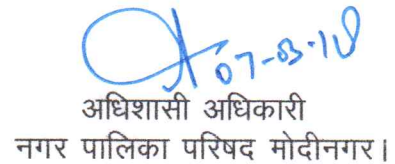 07-03-18
अधिशासी अधिकारी
नगर पालिका परिषद मोदीनगर।